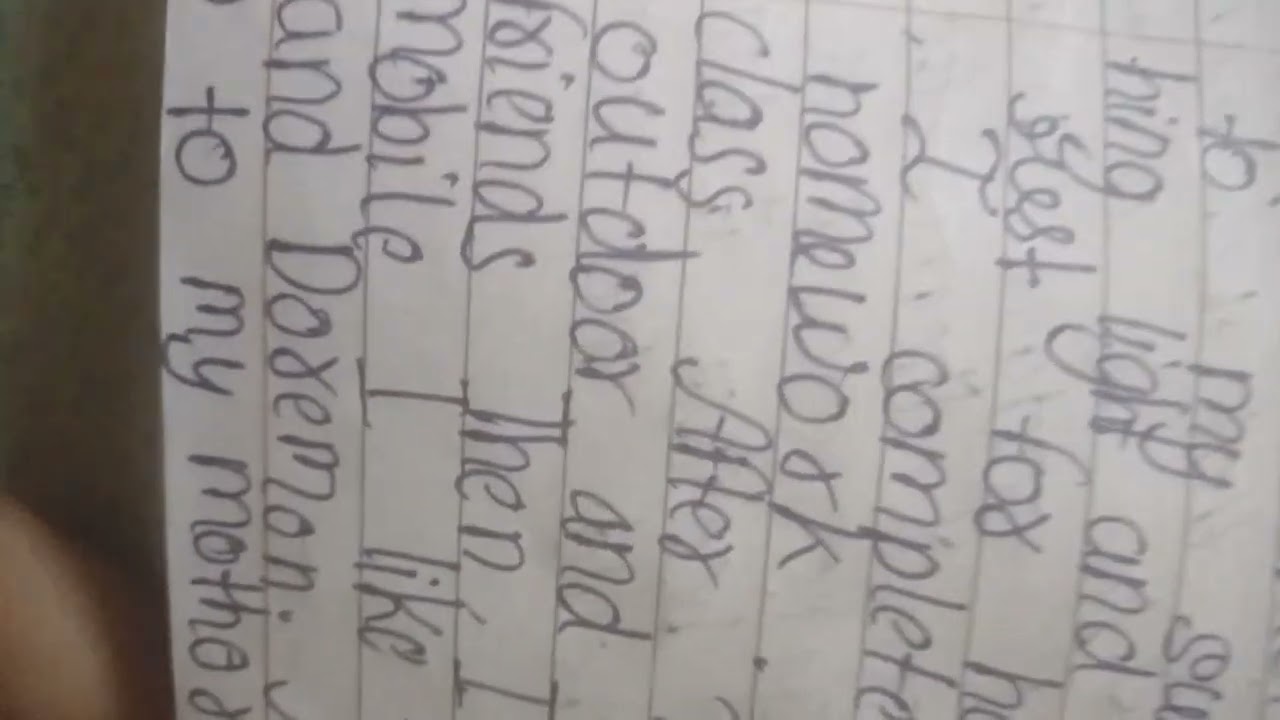 to my
hing light and
rest for
I complete
homework
class. After
outdoor and
friends Then, I
mobile I like
and Doremon.
to my mother